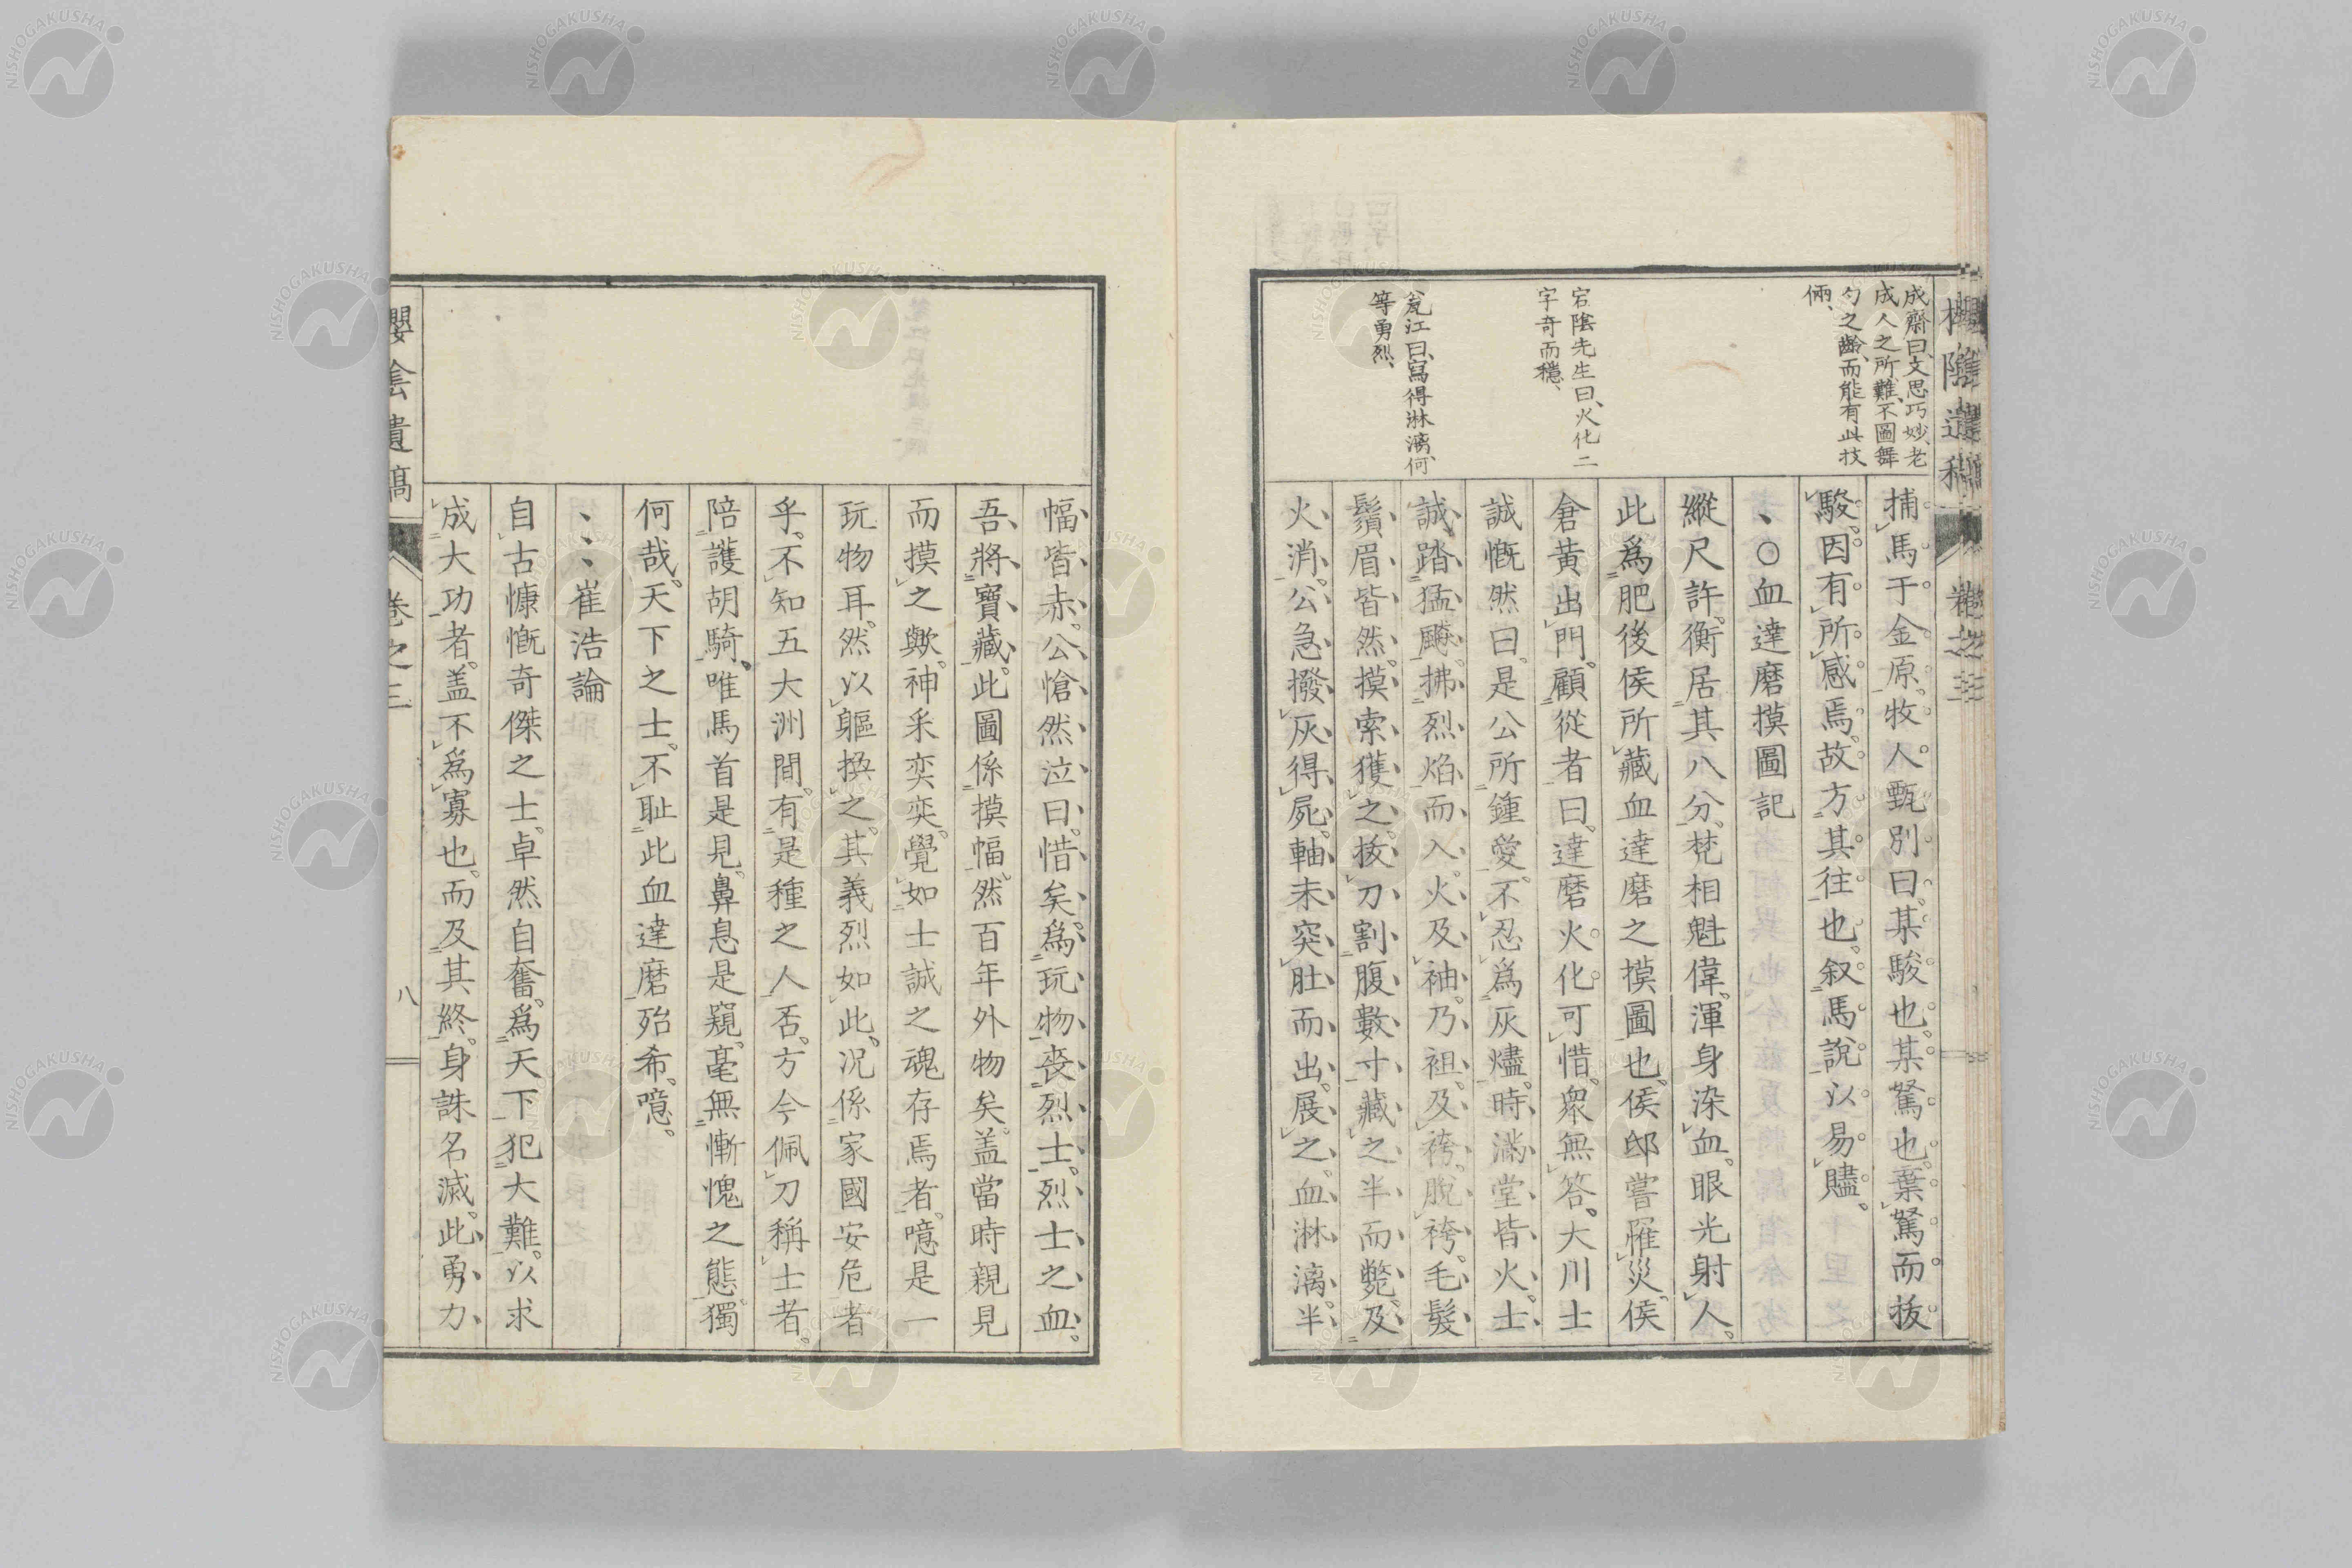 成齋曰、文思巧妙、老
成人之所難、不圖舞
勺之齡、而能有此技
倆、
宕陰先生曰、火化二
字奇而穩、
瓮江曰、寫得淋漓、何
等勇烈、
捕馬于金原。牧人甄別曰。某駿也。某駑也。棄駑而拔
駿。因有所感焉。故方其往也。叙馬說以易贐。
、○血達磨摸圖記
縱尺許。衡居其八分。梵相魁偉。渾身染血。眼光射人。
此爲肥後侯所藏血達磨之摸圖也。侯邸嘗罹災。侯
倉黃出門。顧從者曰。達磨火化可惜。衆無答。大川士
誠慨然曰。是公所鍾愛。不忍爲灰燼。時滿堂皆火。士
誠踏猛飈。拂烈焰而入。火及袖。乃袒。及袴。脫袴。毛髮
鬚眉皆然。摸索獲之。拔刀割腹數寸。藏之半而斃。及
火消。公急撥灰得屍。軸未突肚而出。展之。血淋漓。半
幅皆赤。公愴然泣曰。惜矣。爲玩物喪烈士。烈士之血。
吾將寶藏。此圖係摸幅。然百年外物矣。盖當時親見
而摸之歟。神采奕奕。覺如士誠之魂存焉者。噫是一
玩物耳。然以軀換之。其義烈如此。况係家國安危者
乎。不知五大洲間。有是種之人否。方今佩刀稱士者。
陪護胡騎。唯馬首是見。鼻息是窺。毫無慚愧之態。獨
何哉。天下之士。不耻此血達磨殆希。噫。
、、、崔浩論
自古慷慨奇傑之士。卓然自奮。爲天下犯大難。以求
成大功者。盖不爲寡也。而及其終。身誅名滅。此勇力
櫻陰遺稿 卷之三 八